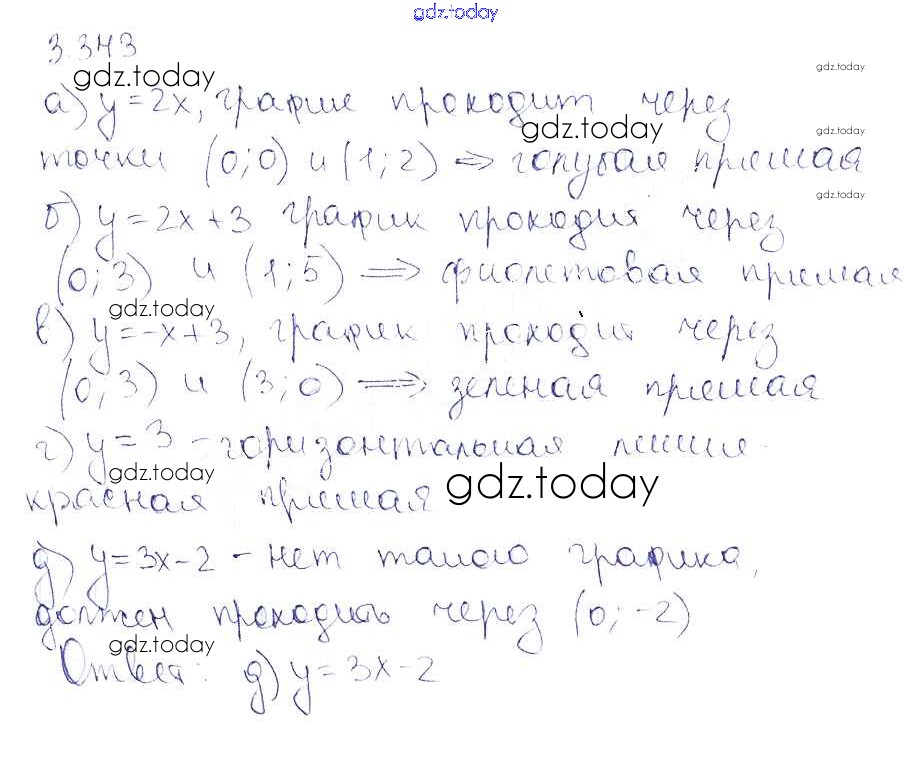 gdz.today
3.343
gdz.today
gdz.today
а) y = 2x, график проходит через
gdz.today
gdz.today
точки (0; 0) и (1; 2) => голубая прямая
gdz.today
б) y = 2x + 3 график проходит через
(0; 3) и (1; 5) => фиолетовая прямая
gdz.today
в) y = -x + 3, график проходит через
(0; 3) и (3; 0) => зеленая прямая
г) y = 3 - горизонтальная линия -
gdz.today
gdz.today
красная прямая
д) y = 3x - 2 - нет такого графика,
должен проходить через (0; -2)
gdz.today
Ответ: д) y = 3x - 2